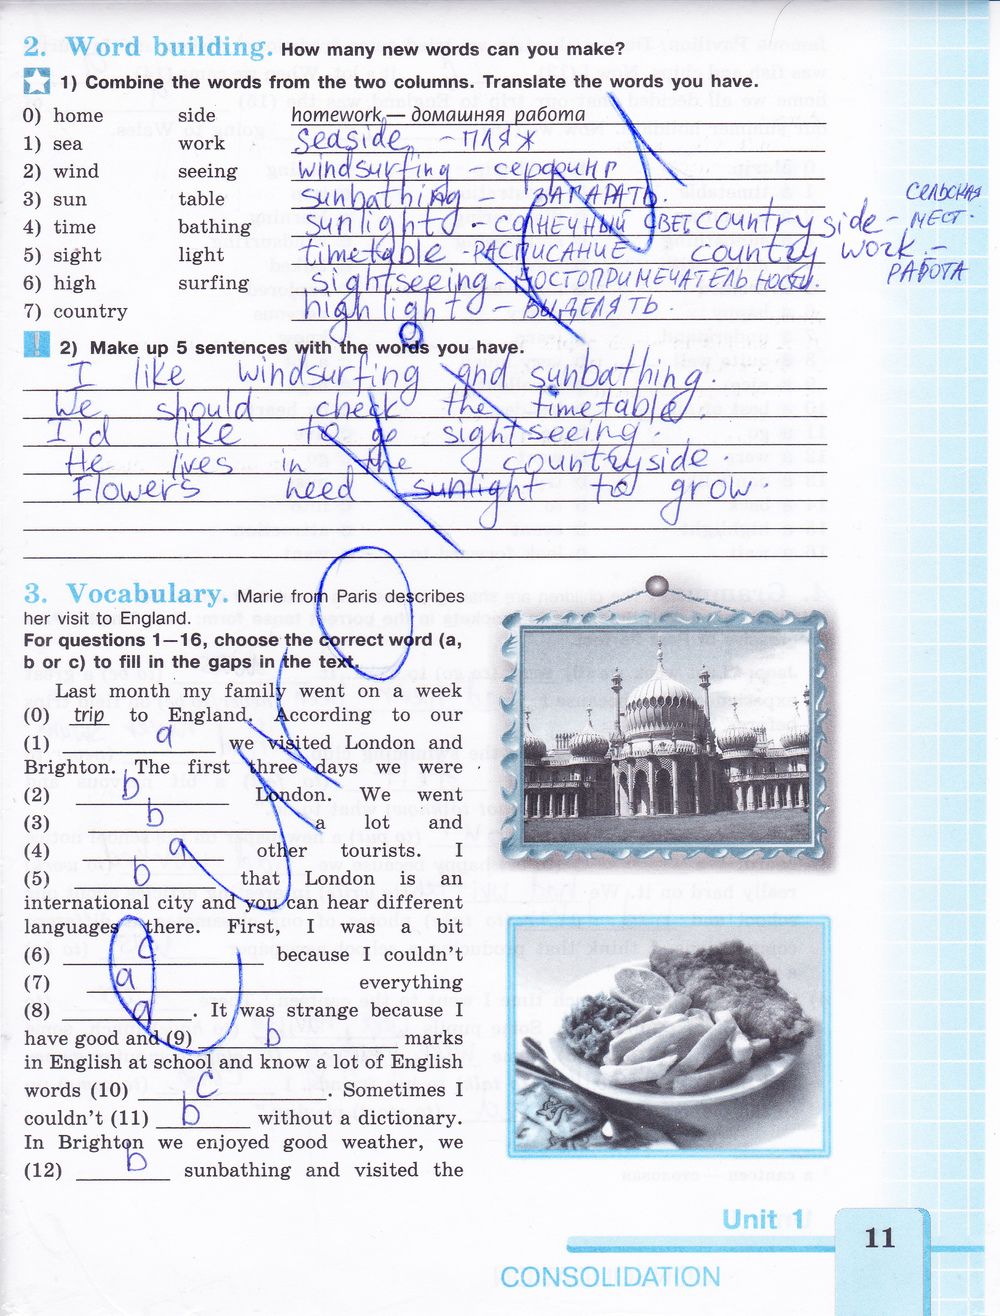 2. Word building. How many new words can you make?
1) Combine the words from the two columns. Translate the words you have.
0) home side homework — домашняя работа
1) sea work seaside - ПЛЯЖ
2) wind seeing windsurfing - серфинг
3) sun table sunbathing - ЗАГАРАТЬ.
4) time bathing sunlight - СОЛНЕЧНЫЙ СВЕТ countryside - СЕЛЬСКАЯ МЕСТ.
5) sight light timetable - РАСПИСАНИЕ country work - РАБОТА
6) high surfing sightseeing ДОСТОПРИМЕЧАТЕЛЬНОСТИ.
7) country highlight - ВЫДЕЛЯТЬ.
2) Make up 5 sentences with the words you have.
I like windsurfing and sunbathing.
We should check the timetable.
I'd like to go sightseeing.
He lives in the countryside.
Flowers need sunlight to grow.
3. Vocabulary. Marie from Paris describes
her visit to England.
For questions 1—16, choose the correct word (a,
b or c) to fill in the gaps in the text.
Last month my family went on a week
(0) trip to England. According to our
(1) a we visited London and
Brighton. The first three days we were
(2) b London. We went
(3) b a lot and
(4) a other tourists. I
(5) b that London is an
international city and you can hear different
languages there. First, I was a bit
(6) c because I couldn't
(7) a everything
(8) a. It was strange because I
have good and (9) b marks
in English at school and know a lot of English
words (10) c. Sometimes I
couldn't (11) b without a dictionary.
In Brighton we enjoyed good weather, we
(12) b sunbathing and visited the
Unit 1
11
CONSOLIDATION